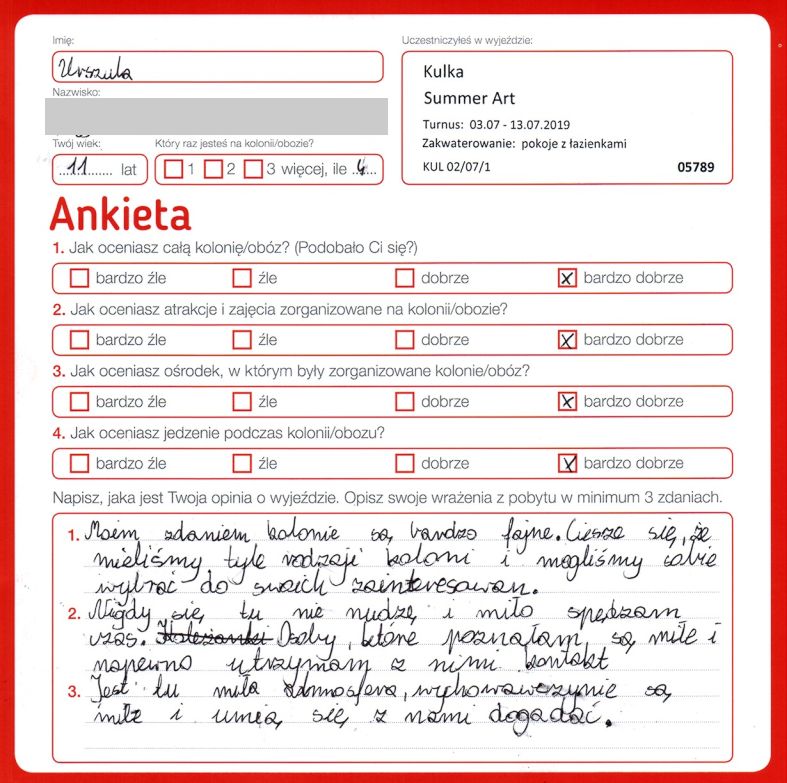 Imię:
Urszula
Nazwisko:
Twój wiek:
11 lat
Który raz jesteś na kolonii/obozie?
1 2 3 więcej, ile 4
Uczestniczyłeś w wyjeździe:
Kulka
Summer Art
Turnus: 03.07 - 13.07.2019
Zakwaterowanie: pokoje z łazienkami
KUL 02/07/1 05789
Ankieta
1. Jak oceniasz całą kolonię/obóz? (Podobało Ci się?)
bardzo źle źle dobrze x bardzo dobrze
2. Jak oceniasz atrakcje i zajęcia zorganizowane na kolonii/obozie?
bardzo źle źle dobrze x bardzo dobrze
3. Jak oceniasz ośrodek, w którym były zorganizowane kolonie/obóz?
bardzo źle źle dobrze x bardzo dobrze
4. Jak oceniasz jedzenie podczas kolonii/obozu?
bardzo źle źle dobrze x bardzo dobrze
Napisz, jaka jest Twoja opinia o wyjeździe. Opisz swoje wrażenia z pobytu w minimum 3 zdaniach.
1. Moim zdaniem kolonie są bardzo fajne. Ciesze się, że
mieliśmy tyle rodzaji koloni i mogliśmy sobie
wybrać do swoich zainteresowan.
2. Nigdy się tu nie nudzę i miło spędzam
czas. Koleżanki Osoby, które poznałam są miłe i
napewno utrzymam z nimi kontakt
3. Jest tu miła atmosfera, wychowawczynie są
miłe i umieą się z nami dogadać.